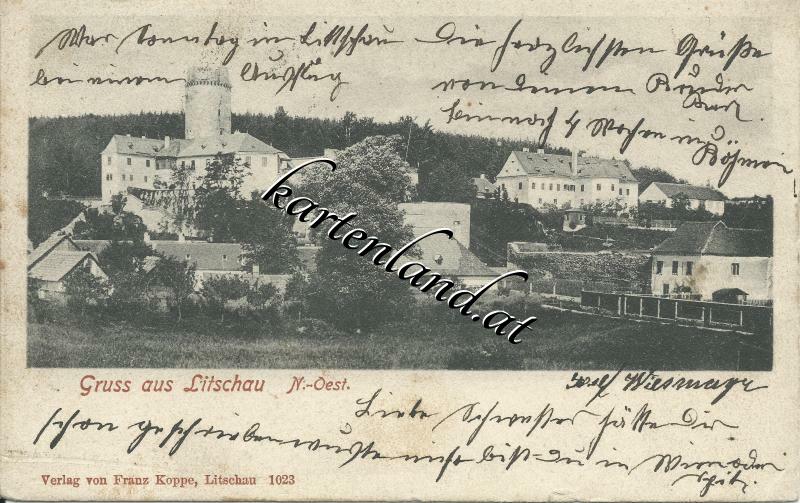 War Sonntag in Littschau
bei einem Ausflug
Die herzlichsten Grüße
von deinem Bruder
Karl
bin noch 4 Wochen in
Böhmen
kartenland.at
Gruss aus Litschau N.-Oest.
Wiesmayr
Liebe Schwester hätte dir
schon geschrieben wuste nicht bist du in Wien oder
Verlag von Franz Koppe, Litschau 1023